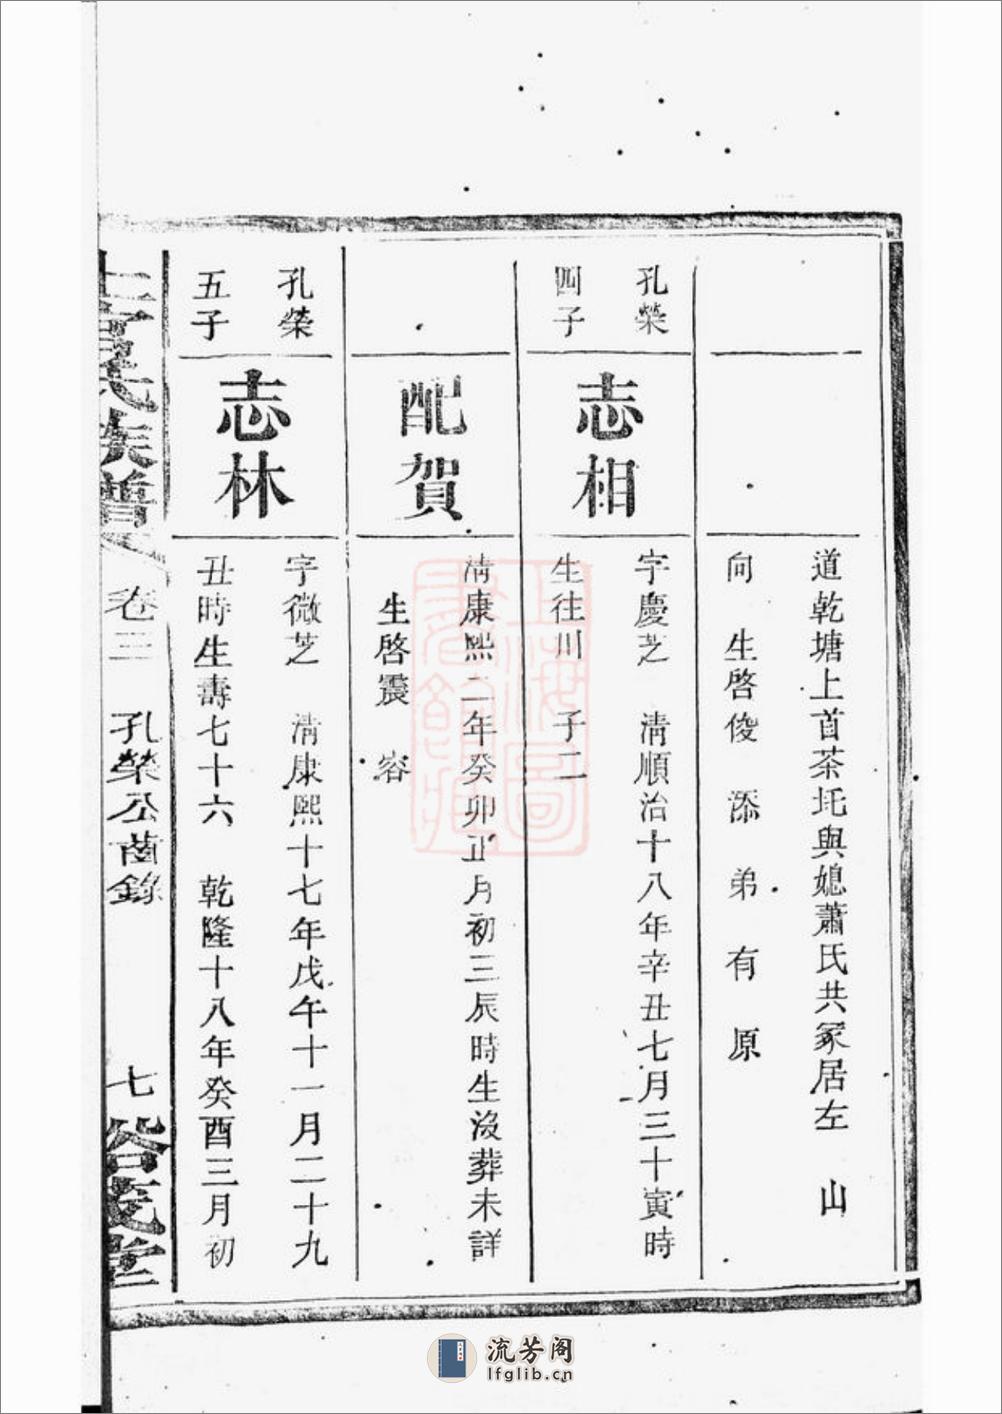 道乾塘上首茶圫與媳蕭氏共冢居左 山
向 生啓俊 添 弟 有 原
孔榮
四子
志相
字慶芝 淸順治十八年辛丑七月三十寅時
生往川 子二
配賀
淸康熙二年癸卯正月初三辰時生沒葬未詳
生啓震 容
孔榮
五子
志林
字微芝 淸康熙十七年戊午十一月二十九
丑時生壽七十六 乾隆十八年癸酉三月初
氏族譜
卷三 孔榮公齒錄 七
裕茂堂
上海圖書館藏
流芳阁
lfglib.cn